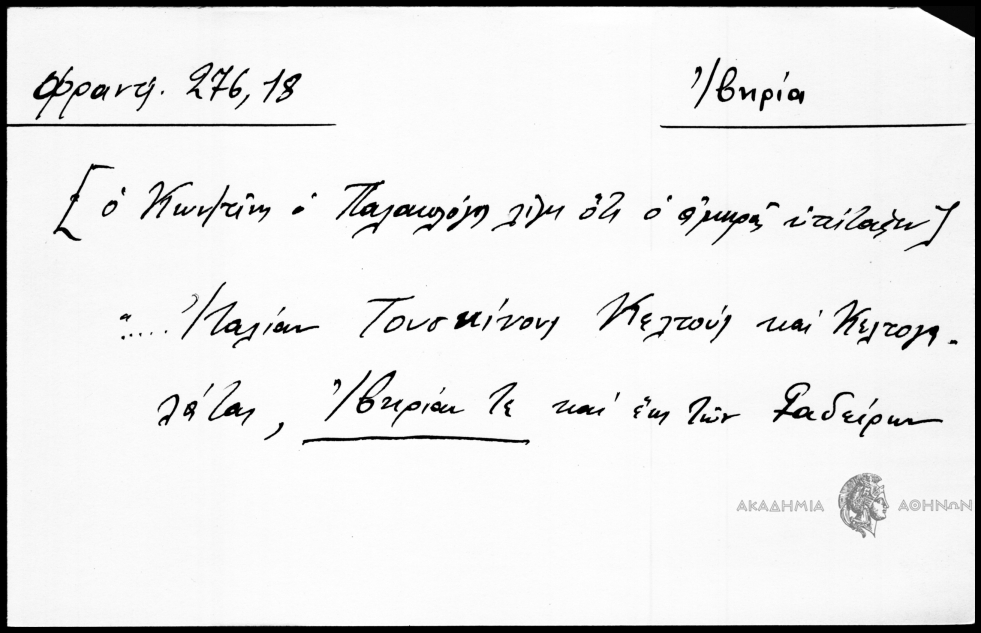 Φραντζ. 276,18
Ἰβηρία
[ὁ Κωνστῖνος ὁ Παλαιολόγος λέγει ὅτι ὁ ἀμηρᾶς ὑπέταξεν]
"....Ἰταλίαν Τουσκίνους Κελτοὺς καὶ Κελτογα-
λάτας, Ἰβηρίαν τε καὶ ἕως τῶν Γαδείρων
ΑΚΑΔΗΜΙΑ ΑΘΗΝΩΝ